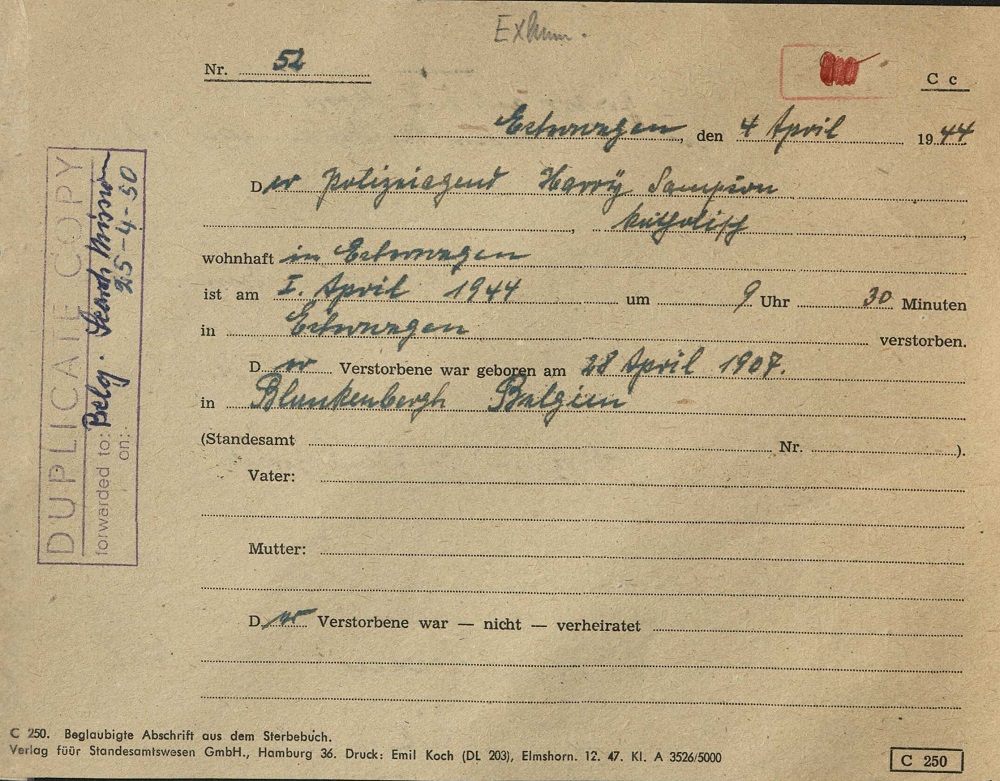 Exhum.
Nr. 52
C c
Esterwegen, den 4 April 1944
Der Polizeiagend Harry Sampion
katholisch
wohnhaft in Esterwegen
ist am I. April 1944 um 9 Uhr 30 Minuten
in Esterwegen verstorben.
Der Verstorbene war geboren am 28 April 1907.
in Blankenbergh Belgien
(Standesamt Nr. ).
Vater:
Mutter:
Der Verstorbene war — nicht — verheiratet
C 250. Beglaubigte Abschrift aus dem Sterbebuch.
Verlag füür Standesamtswesen GmbH., Hamburg 36. Druck: Emil Koch (DL 203), Elmshorn. 12. 47. Kl. A 3526/5000
C 250
DUPLICATE COPY
forwarded to: Belg. Search Mission
on: 25-4-50